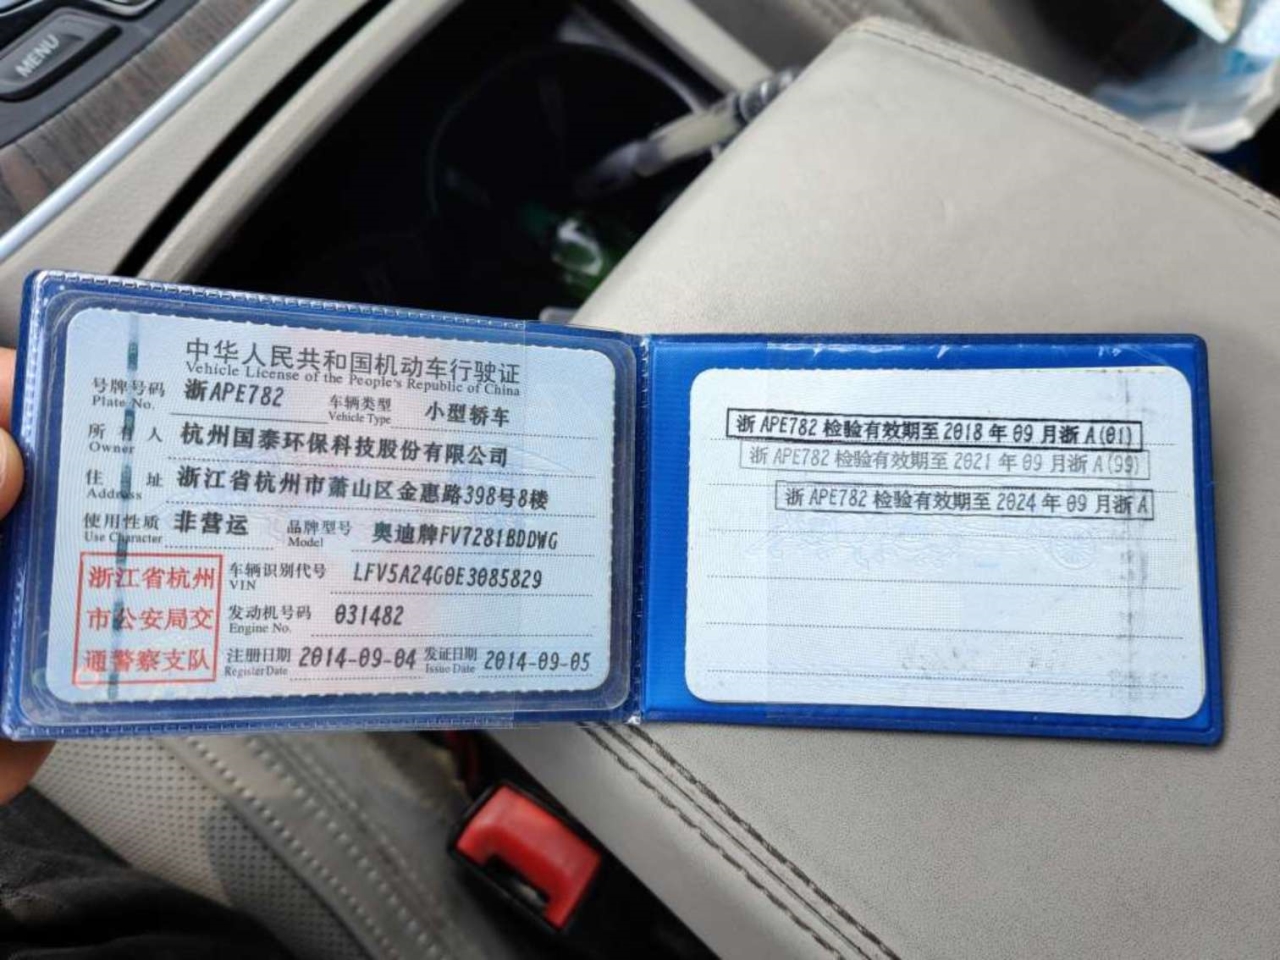 MENU
中华人民共和国机动车行驶证
Vehicle License of the People's Republic of China
号牌号码 浙APE782 车辆类型 小型轿车
Plate No. Vehicle Type
所有人 杭州国泰环保科技股份有限公司
Owner
住址 浙江省杭州市萧山区金惠路398号8楼
Address
使用性质 非营运 品牌型号 奥迪牌FV7281BDDWG
Use Character Model
浙江省杭州
市公安局交
通警察支队
车辆识别代号 LFV5A24G0E3085829
VIN
发动机号码 031482
Engine No.
注册日期 2014-09-04 发证日期 2014-09-05
Register Date Issue Date
浙APE782检验有效期至2018年09月浙A(01)
浙APE782检验有效期至2021年09月浙A(99)
浙APE782检验有效期至2024年09月浙A